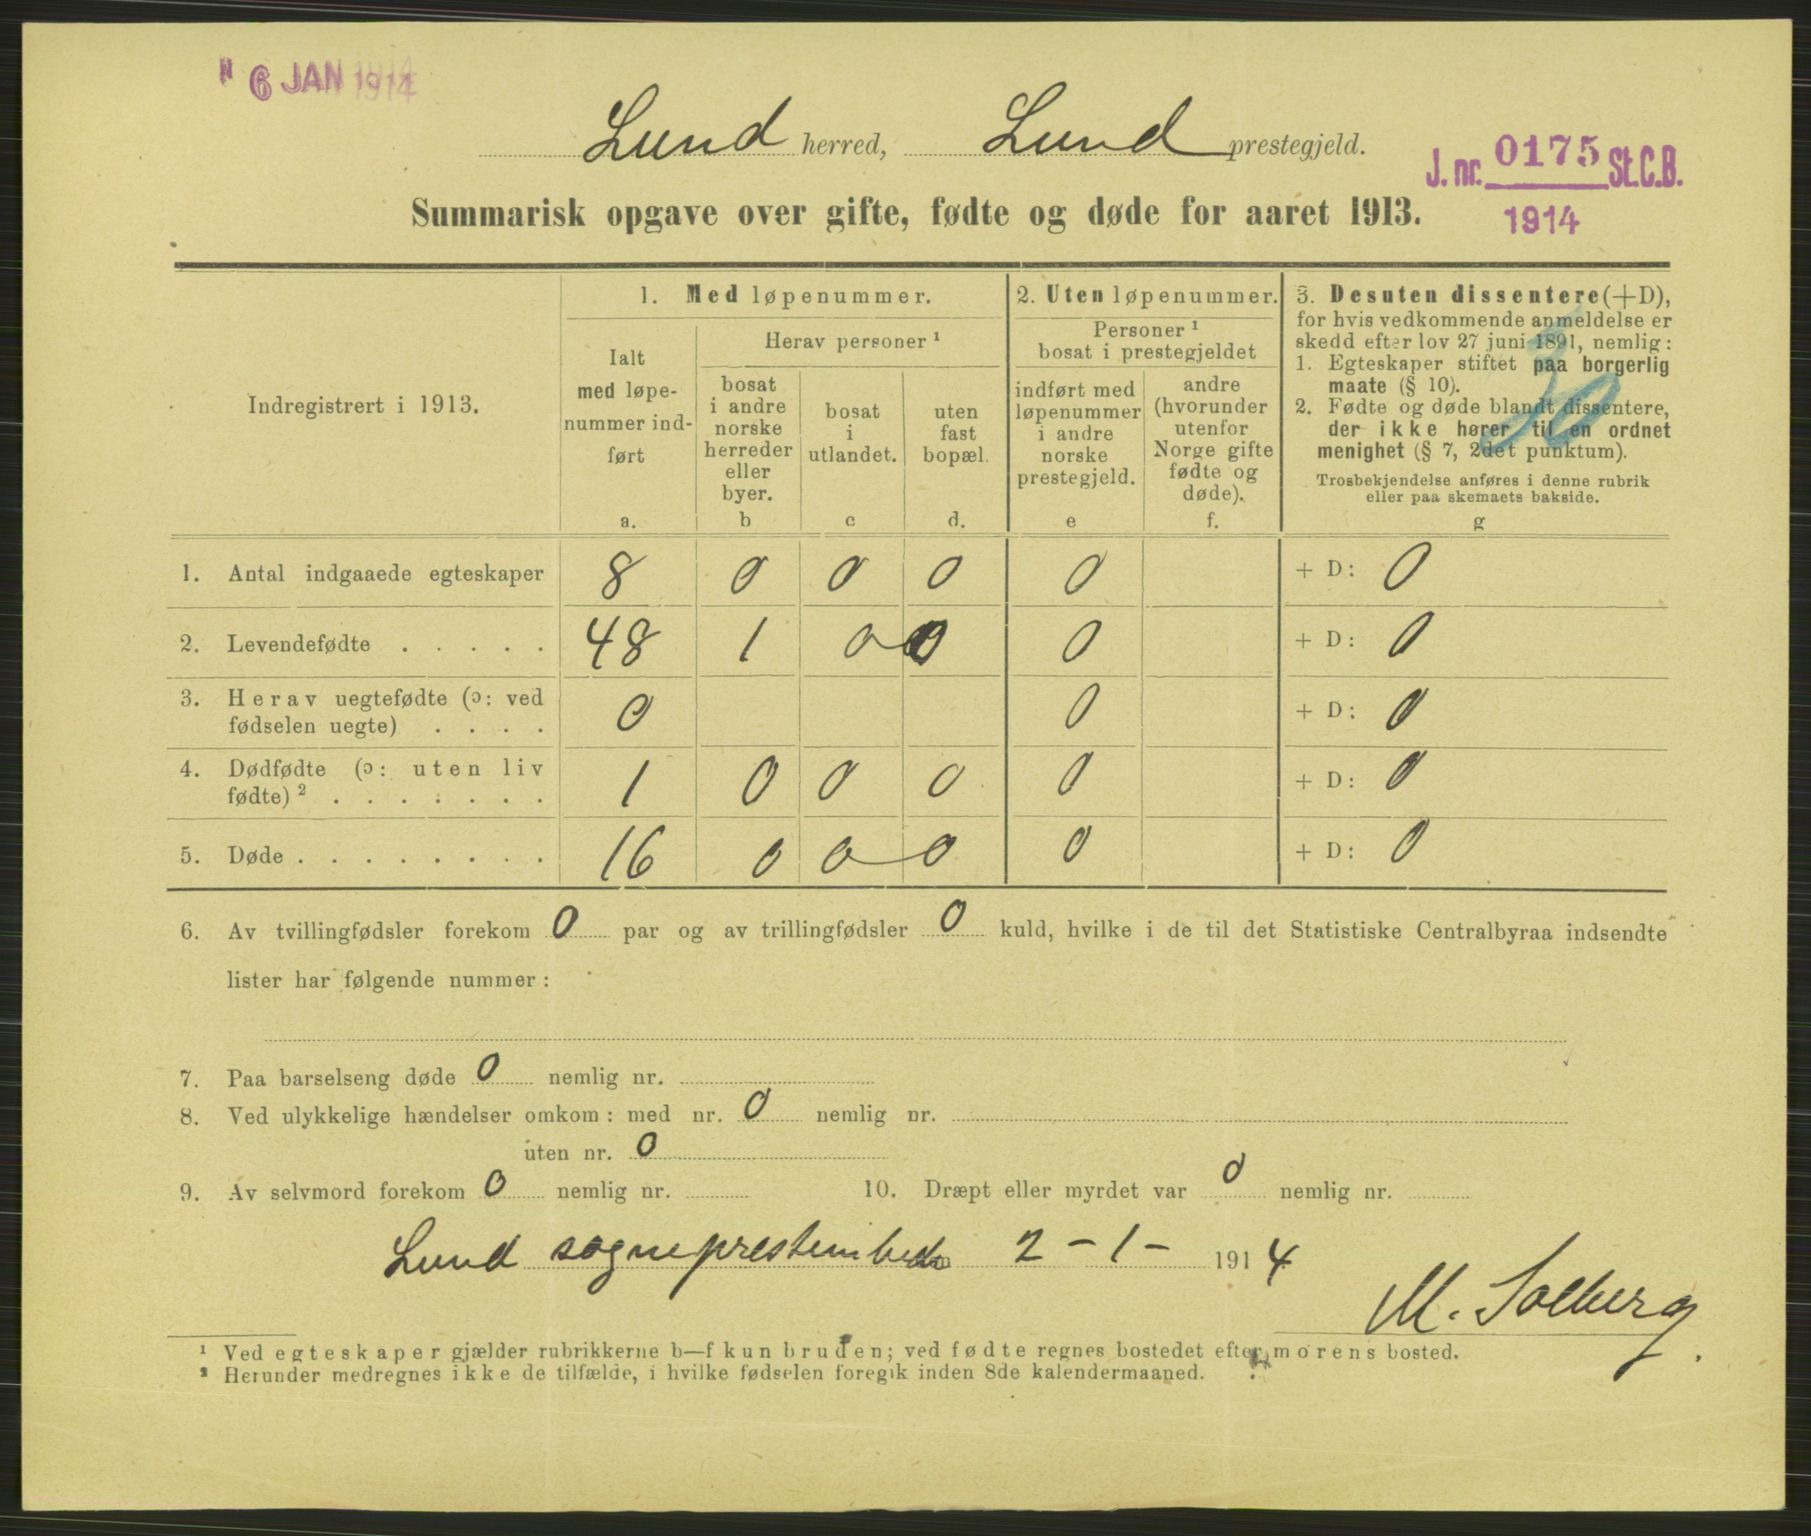 6 JAN 1914
Lund herred, Lund prestegjeld.
J. nr. 0175 St.C.B.
1914
Summarisk opgave over gifte, fødte og døde for aaret 1913.
Indregistrert i 1913.
1. Med løpenummer.
Ialt
med løpe-
nummer ind-
ført
a.
Herav personer ¹
bosat
i andre
norske
herreder
eller
byer.
b
bosat
i
utlandet.
c
uten
fast
bopæl.
d.
2. Uten løpenummer.
Personer ¹
bosat i prestegjeldet
indført med
løpenummer
i andre
norske
prestegjeld.
e
andre
(hvorunder
utenfor
Norge gifte
fødte og
døde).
f.
3. Desuten dissentere (+D),
for hvis vedkommende anmeldelse er
skedd efter lov 27 juni 1891, nemlig:
1. Egteskaper stiftet paa borgerlig
maate (§ 10).
2. Fødte og døde blandt dissentere,
der ikke hører til en ordnet
menighet (§ 7, 2det punktum).
Trosbekjendelse anføres i denne rubrik
eller paa skemaets bakside.
g
30
1. Antal indgaaede egteskaper 8 0 0 0 0 + D: 0
2. Levendefødte . . . . . 48 1 0 0 0 + D: 0
3. Herav uegtefødte (ɔ: ved
fødselen uegte) . . . . 0 0 + D: 0
4. Dødfødte (ɔ: uten liv
fødte) ² . . . . . . . 1 0 0 0 0 + D: 0
5. Døde . . . . . . . . 16 0 0 0 0 + D: 0
6. Av tvillingfødsler forekom 0 par og av trillingfødsler 0 kuld, hvilke i de til det Statistiske Centralbyraa indsendte
lister har følgende nummer:
7. Paa barselseng døde 0 nemlig nr.
8. Ved ulykkelige hændelser omkom: med nr. 0 nemlig nr.
uten nr. 0
9. Av selvmord forekom 0 nemlig nr. 10. Dræpt eller myrdet var 0 nemlig nr.
Lund sogneprestembede 2 - 1 - 1914
M. Solberg.
¹ Ved egteskaper gjælder rubrikkerne b—f kun bruden; ved fødte regnes bostedet efter morens bosted.
² Herunder medregnes ikke de tilfælde, i hvilke fødselen foregik inden 8de kalendermaaned.